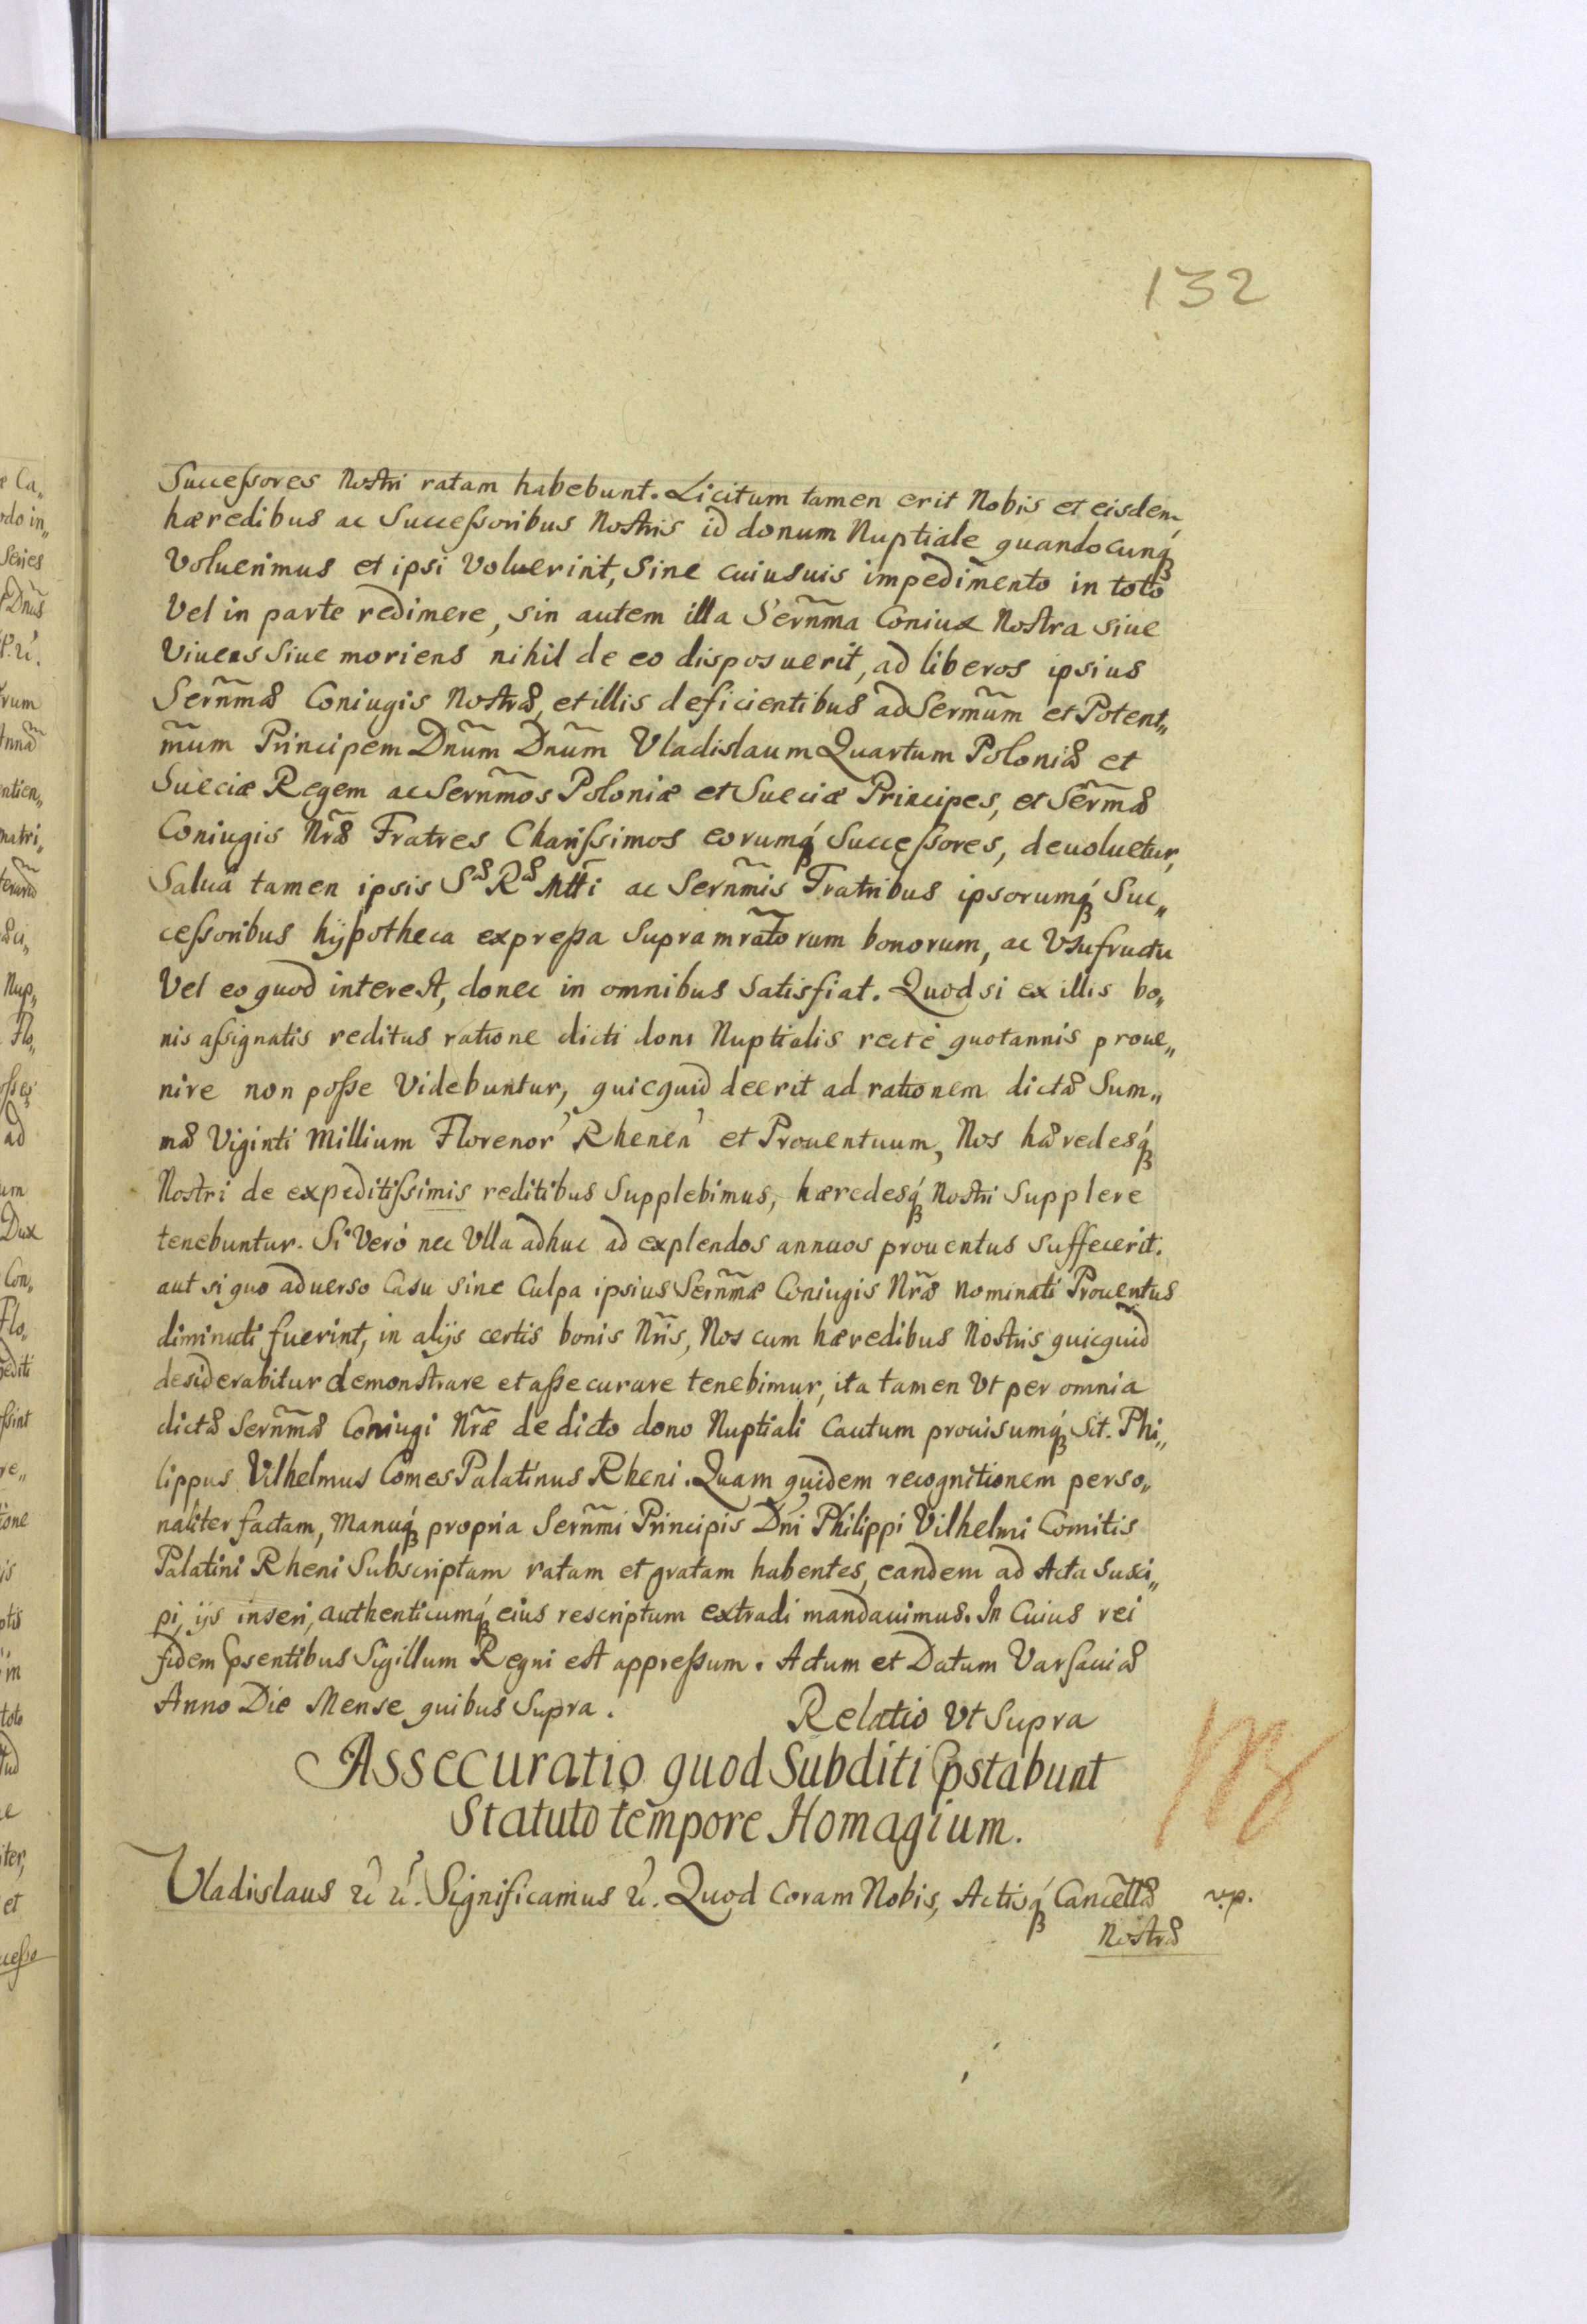 132
Successores Nostri ratam habebunt. Licitum tamen erit Nobis et eisdem
hæredibus ac Successoribus Nostris id donum Nuptiale quandocunq́
Voluerimus et ipsi Voluerint, Sine cuiusuis impedimento in toto
Vel in parte redimere, sin autem illa Serñma Coniux Nostra siue
Viuens Siue moriens nihil de eo disposuerit, ad liberos ipsius
Serñmæ Coniugis Nostræ, et illis deficientibus ad Sermũm et Potent„
m̃um Principem Dnũm Dnũm Vladislaum Quartum Poloniæ et
Sueciæ Regem ac Serñmos Poloniæ et Sueciæ Principes, et Ser̃mæ
Coniugis Nr̃æ Fratres Charissimos eorumq́ Successores, deuoluetur,
Saluâ tamen ipsis Sæ Ræ Mtti ac Serñmis Fratribus ipsorumq́ Suc„
cessoribus hÿpotheca expressa Supramratõrum bonorum, ac Vsufructu
Vel eo quod interest, donec in omnibus Satisfiat. Quod si ex illis bo„
nis assignatis reditus ratione dicti doni Nuptialis rectè quotannis proue„
nire non posse Videbuntur, quicquid deerit ad rationem dictæ Sum„
mæ Viginti Millium Florenor' Rhenen' et Prouentuum, Nos hæredesq́
Nostri de expeditissimis reditibus Supplebimus, hæredesq́ Nostri Supplere
tenebuntur. Si Verò nec Vlla adhuc ad explendos annuos prouentus Suffecerit.
aut si quo aduerso Casu sine Culpa ipsius Serñmæ Coniugis Nr̃æ Nominati Prouentus
diminuti fuerint, in alijs certis bonis Nr̃is, Nos cum hæredibus Nostris quicquid
desiderabitur demonstrare et assecurare tenebimur, ita tamen Vt per omnia
dictæ Serñmæ Coniugi Nr̃æ de dicto dono Nuptiali Cautum prouisumq́ Sit. Phi„
lippus Vilhelmus Comes Palatinus Rheni. Quam quidem recognitionem perso„
naliter factam, Manuq́ propria Serñmi Principis Dni Philippi Vilhelmi Comitis
Palatini Rheni Subscriptam ratam et gratam habentes, eandem ad Acta Susci„
pi, ijs inseri, authenticumq́ eius rescriptum extradi mandauimus. In Cuius rei
fidem p̃sentibus Sigillum Regni est appressum. Actum et Datum Varsauiæ
Anno Die Mense quibus Supra. Relatio Vt Supra
Assecuratio quod Subditi p̃stabunt
Statuto tempore Homagium.
Vladislaus &c &c. Significamus &c. Quod Coram Nobis, Actisq́ Cancellæ v.p.
Nostræ